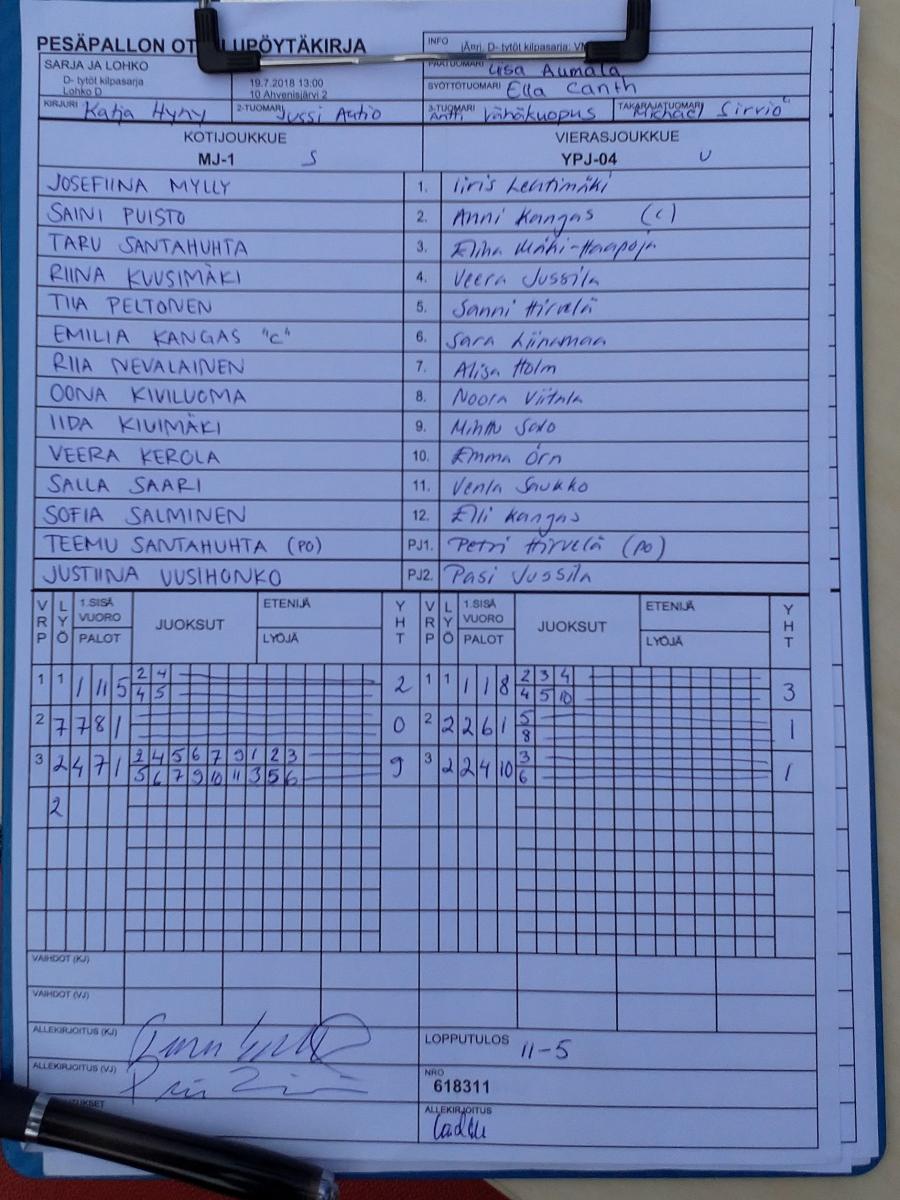 PESÄPALLON OT LUPÖYTÄKIRJA
INFO jÄnri, D- tytöt kilpasarja: VM
SARJA JA LOHKO
D- tytöt kilpasarja
Lohko D
19.7.2018 13:00
10 Ahvenisjärvi 2
PÄÄTUOMARI Liisa Aumala
SYÖTTÖTUOMARI Ella Canth
KIRJURI Katja Hyny
2-TUOMARI Jussi Autio
3-TUOMARI Antti Vähäkuopus
TAKARAJATUOMARI Michael Sirviö
KOTIJOUKKUE VIERASJOUKKUE
MJ-1 S YPJ-04 U
JOSEFIINA MYLLY 1. Iiris Lehtimäki
SAINI PUISTO 2. Anni Kangas (c)
TARU SANTAHUHTA 3. Elina Mäki-Haapoja
RIINA KUUSIMÄKI 4. Veera Jussila
TIIA PELTONEN 5. Sanni Hirvelä
EMILIA KANGAS "C" 6. Sara Liinamaa
RIIA NEVALAINEN 7. Alisa Holm
OONA KIVILUOMA 8. Noora Viitala
IIDA KIVIMÄKI 9. Minttu Salo
VEERA KEROLA 10. Emma Örn
SALLA SAARI 11. Venla Saukko
SOFIA SALMINEN 12. Elli Kangas
TEEMU SANTAHUHTA (PO) PJ1. Petri Hirvelä (PO)
JUSTIINA UUSIHONKO PJ2. Pasi Jussila
VRP LYÖ 1.SISÄ VUORO PALOT JUOKSUT ETENIJÄ LYÖJÄ YHT VRP LYÖ 1.SISÄ VUORO PALOT JUOKSUT ETENIJÄ LYÖJÄ YHT
1 1 1 11 5 2 4 2 1 1 1 1 8 2 3 4 3
4 5 4 5 10
2 7 7 8 1 0 2 2 2 6 1 5 1
8
3 2 4 7 1 2 4 5 6 7 9 1 2 3 9 3 2 2 4 10 3 1
5 6 7 9 10 11 3 5 6 6
2
VAIHDOT (KJ)
VAIHDOT (VJ)
ALLEKIRJOITUS (KJ)
LOPPUTULOS 11-5
ALLEKIRJOITUS (VJ)
NRO
618311
ALLEKIRJOITUS